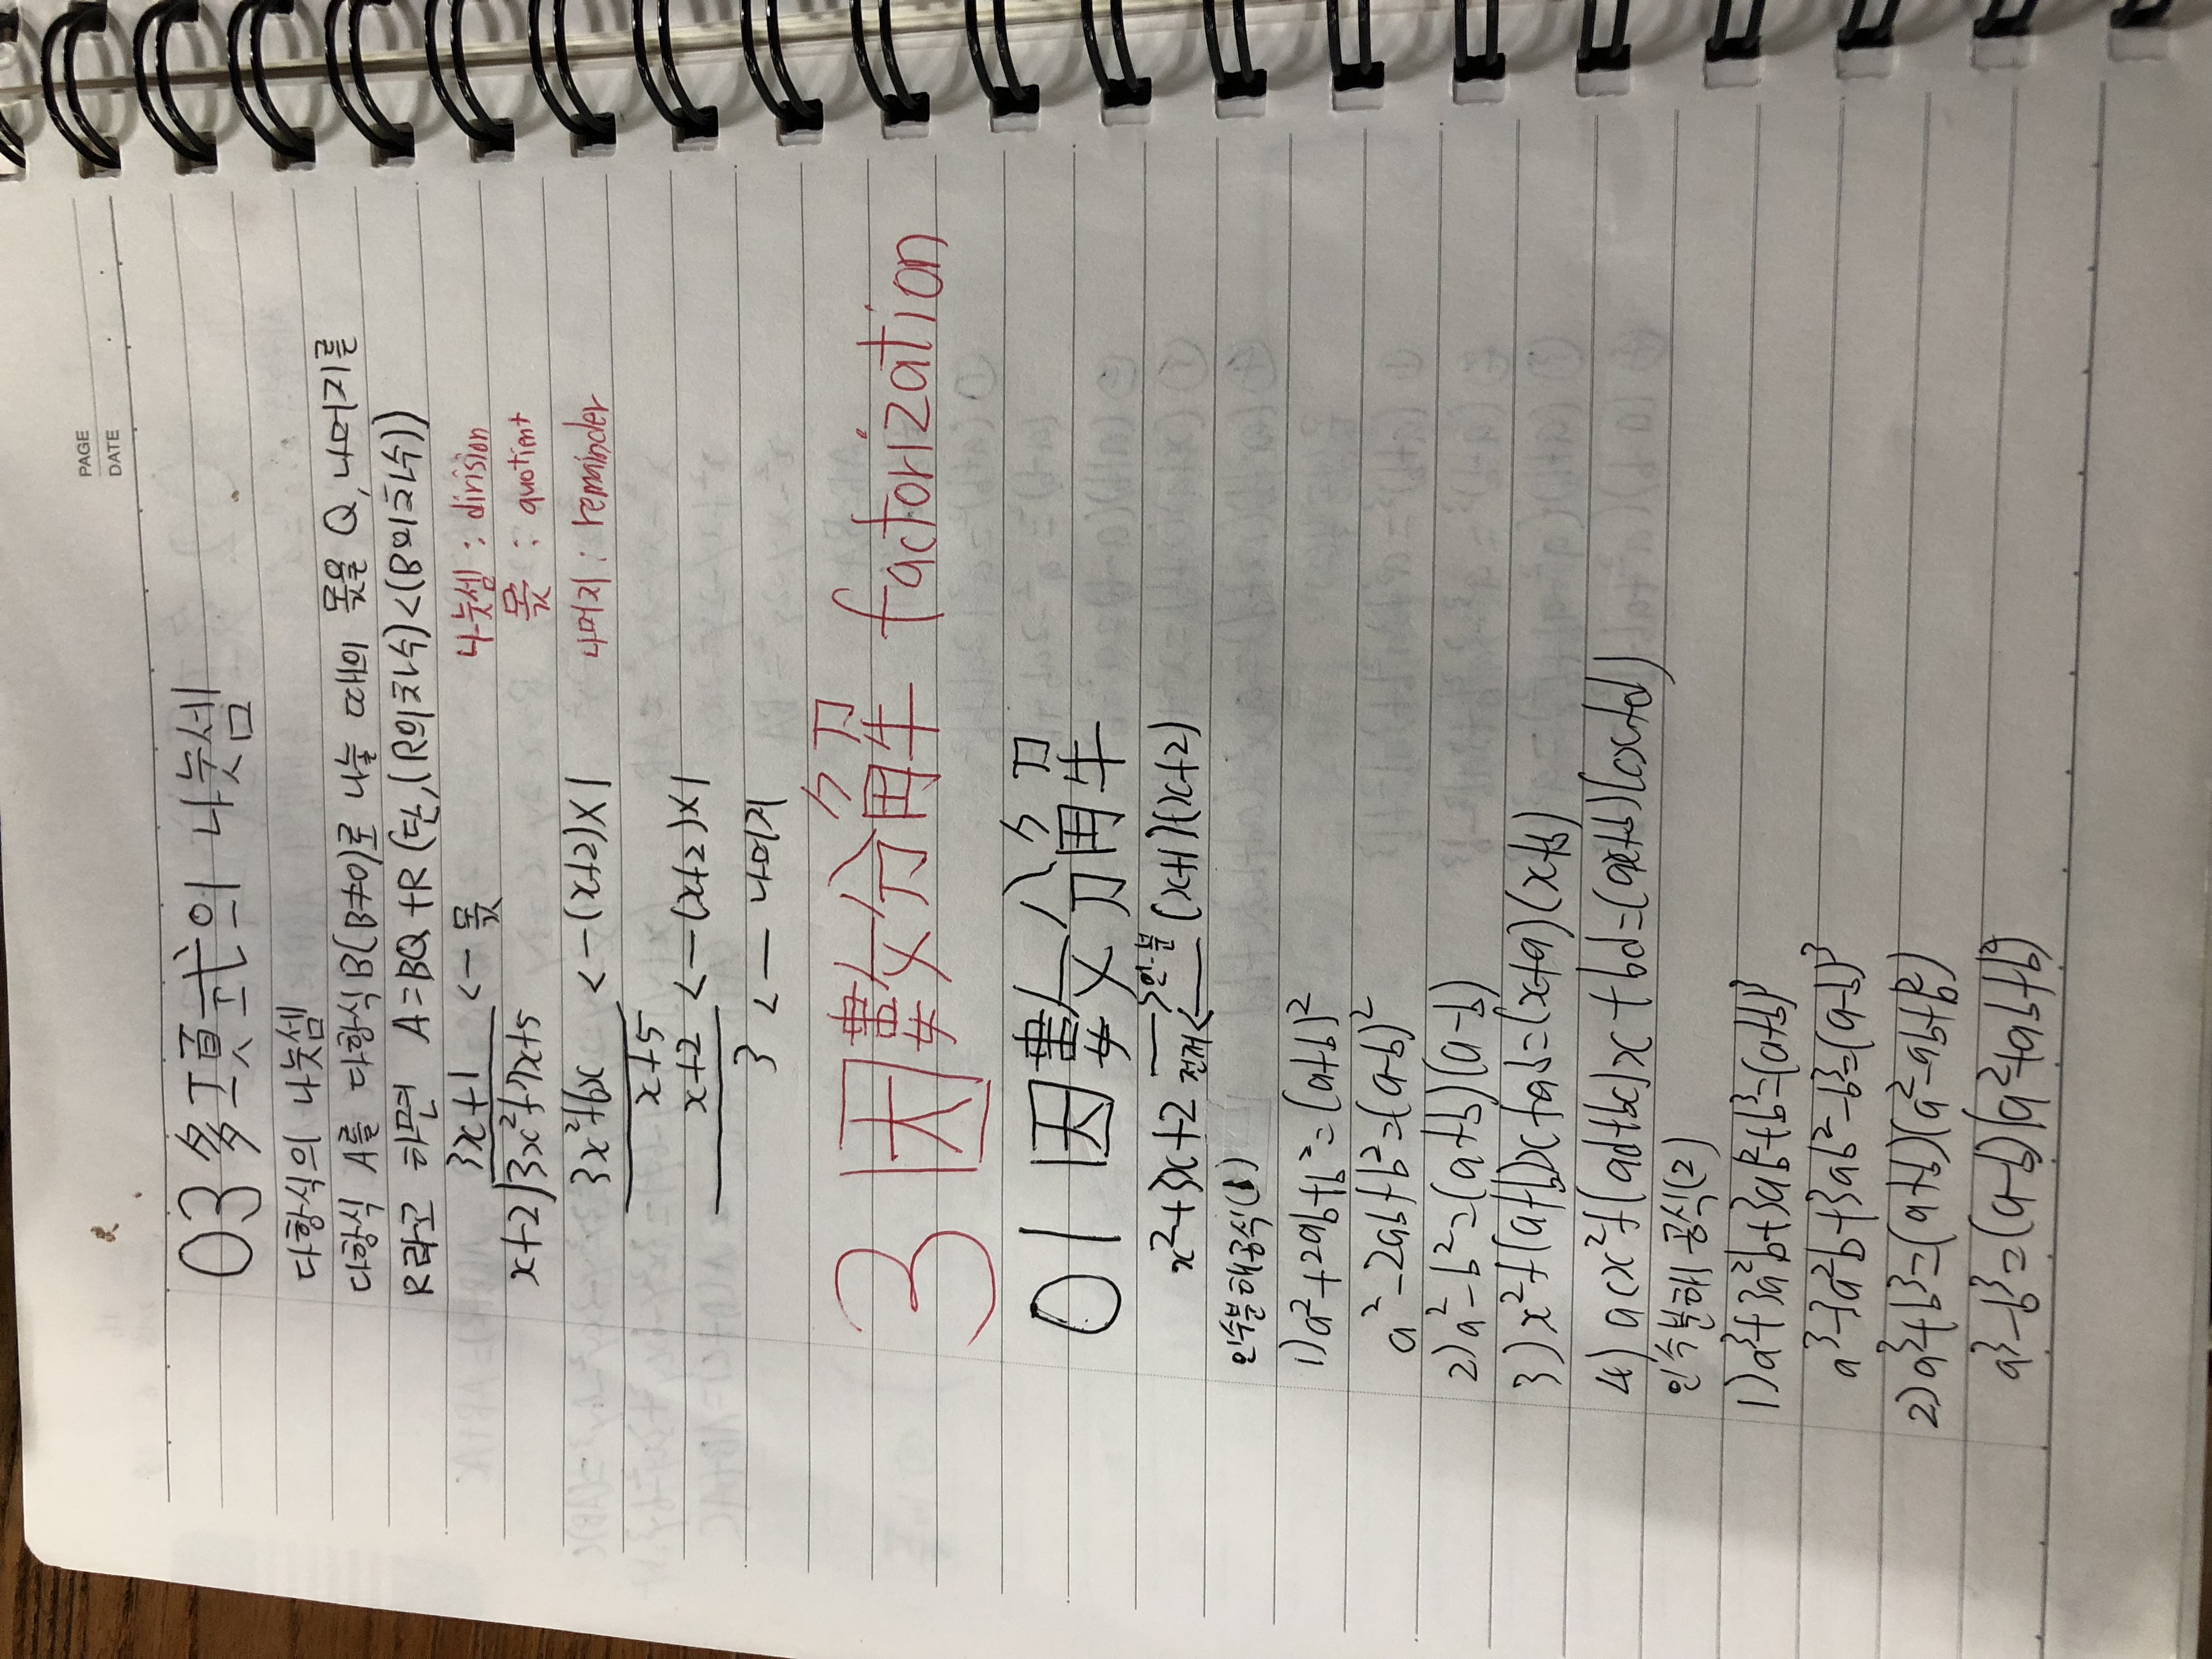 PAGE
DATE
03 多項式의 나눗셈
다항식의 나눗셈
다항식 A를 다항식 B(B≠0)로 나눌 때의 몫을 Q, 나머지를
R라고 하면 A=BQ+R (단,(R의 차수)<(B의 차수))
3x+1 <- 몫 나눗셈 : division
x+2)3x²+7x+5 몫 : quotient
3x²+6x <-(x+2)×1 나머지 : remainder
x+5
x+2 <-(x+2)×1
3 <- 나머지
3 因數分解 factorization
01 因數分解
x²+3x+2 인·분 전개 (x+1)(x+2)
인수분해공식(1)
1) a²+2ab+b²=(a+b)²
a²-2ab+b²=(a-b)²
2) a²-b²=(a+b)(a-b)
3) x²+(a+b)x+ab=(x+a)(x+b)
4) acx²+(ad+bc)x+bd=(ax+b)(cx+d)
인수분해 공식(2)
1) a³+3a²b+3ab²+b³=(a+b)³
a³-3a²b+3ab²-b³=(a-b)³
2) a³+b³=(a+b)(a²-ab+b²)
a³-b³=(a-b)(a²+ab+b²)